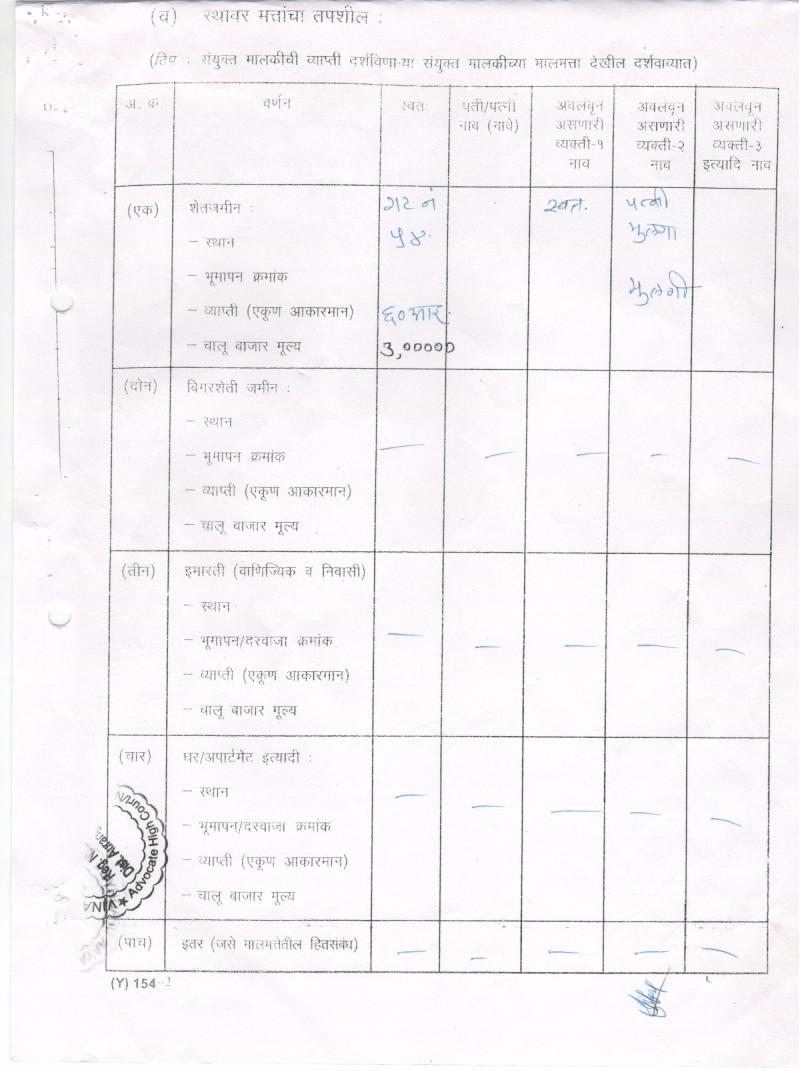 (ब) स्थावर मत्तांचा तपशील :
(टिप : संयुक्त मालकीची व्याप्ती दर्शविणाऱ्या संयुक्त मालकीच्या मालमत्ता देखील दर्शवाव्यात)
अ. क्र. वर्णन स्वतः पती/पत्नी नाव (नावे) अवलंबून असणारी व्यक्ती-१ नाव अवलंबून असणारी व्यक्ती-२ नाव अवलंबून असणारी व्यक्ती-३ इत्यादि नाव
(एक) शेतजमीन : गट नं स्वत. पत्नी
– स्थान ५४. मुलगा
– भूमापन क्रमांक मुलगी
– व्याप्ती (एकूण आकारमान) ६० आर.
– चालू बाजार मूल्य ३,०००००
(दोन) बिगरशेती जमीन :
– स्थान
– भूमापन क्रमांक — — — — —
– व्याप्ती (एकूण आकारमान)
– चालू बाजार मूल्य
(तीन) इमारती (वाणिज्यिक व निवासी)
– स्थान
– भूमापन/दरवाजा क्रमांक — — — — —
– व्याप्ती (एकूण आकारमान)
– चालू बाजार मूल्य
(चार) घर/अपार्टमेंट इत्यादी :
– स्थान — — — — —
– भूमापन/दरवाजा क्रमांक
– व्याप्ती (एकूण आकारमान)
– चालू बाजार मूल्य
(पाच) इतर (जसे मालमत्तेतील हितसंबंध) — — — — —
★ Advocate High Court
Reg. N
Dist.
(Y) 154-2